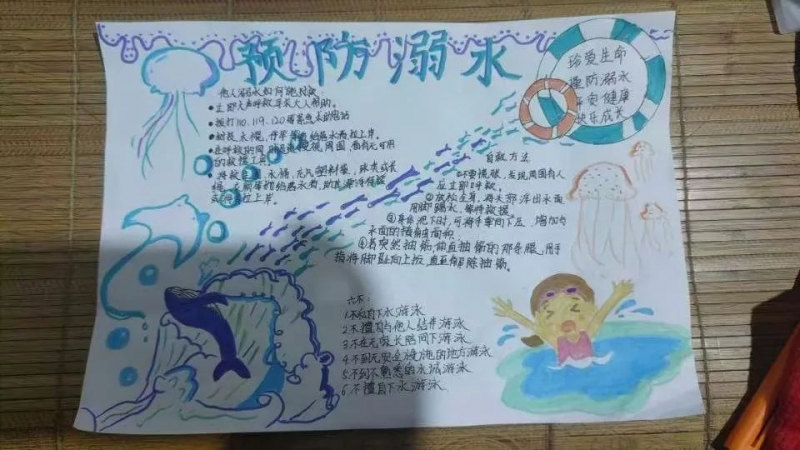 预防溺水
珍爱生命
谨防溺水
平安健康
快乐成长
他人溺水如何施救:
●立即大声呼救寻求大人帮助。
●拨打110、119、120等紧急求助电话
●树枝、木棍、竹竿等
给溺水者,拉上岸。
●在呼救的同时
周围,看有无可用
的救援工具
●将救生圈、木锅、充气塑料袋、球类或长
绳、
给溺水者,
或
拉上岸。
自救方法
①不要慌张,发现周围有人
应立即呼救。
②放松全身,海头部浮出水面
用脚踢水,等待救援。
③身体沉下时,可将手掌向下压
增加与
水面的接触面积。
④若突然抽筋,伸直抽筋的那条腿,用手
指将脚趾向上拉,直至解除抽筋。
六不:
1.不私自下水游泳
2.不擅自与他人结伴游泳
3.不在无家长陪同下游泳
4.不到无安全设施的地方游泳
5.不到不熟悉的水域游泳
6.不擅自下水游泳